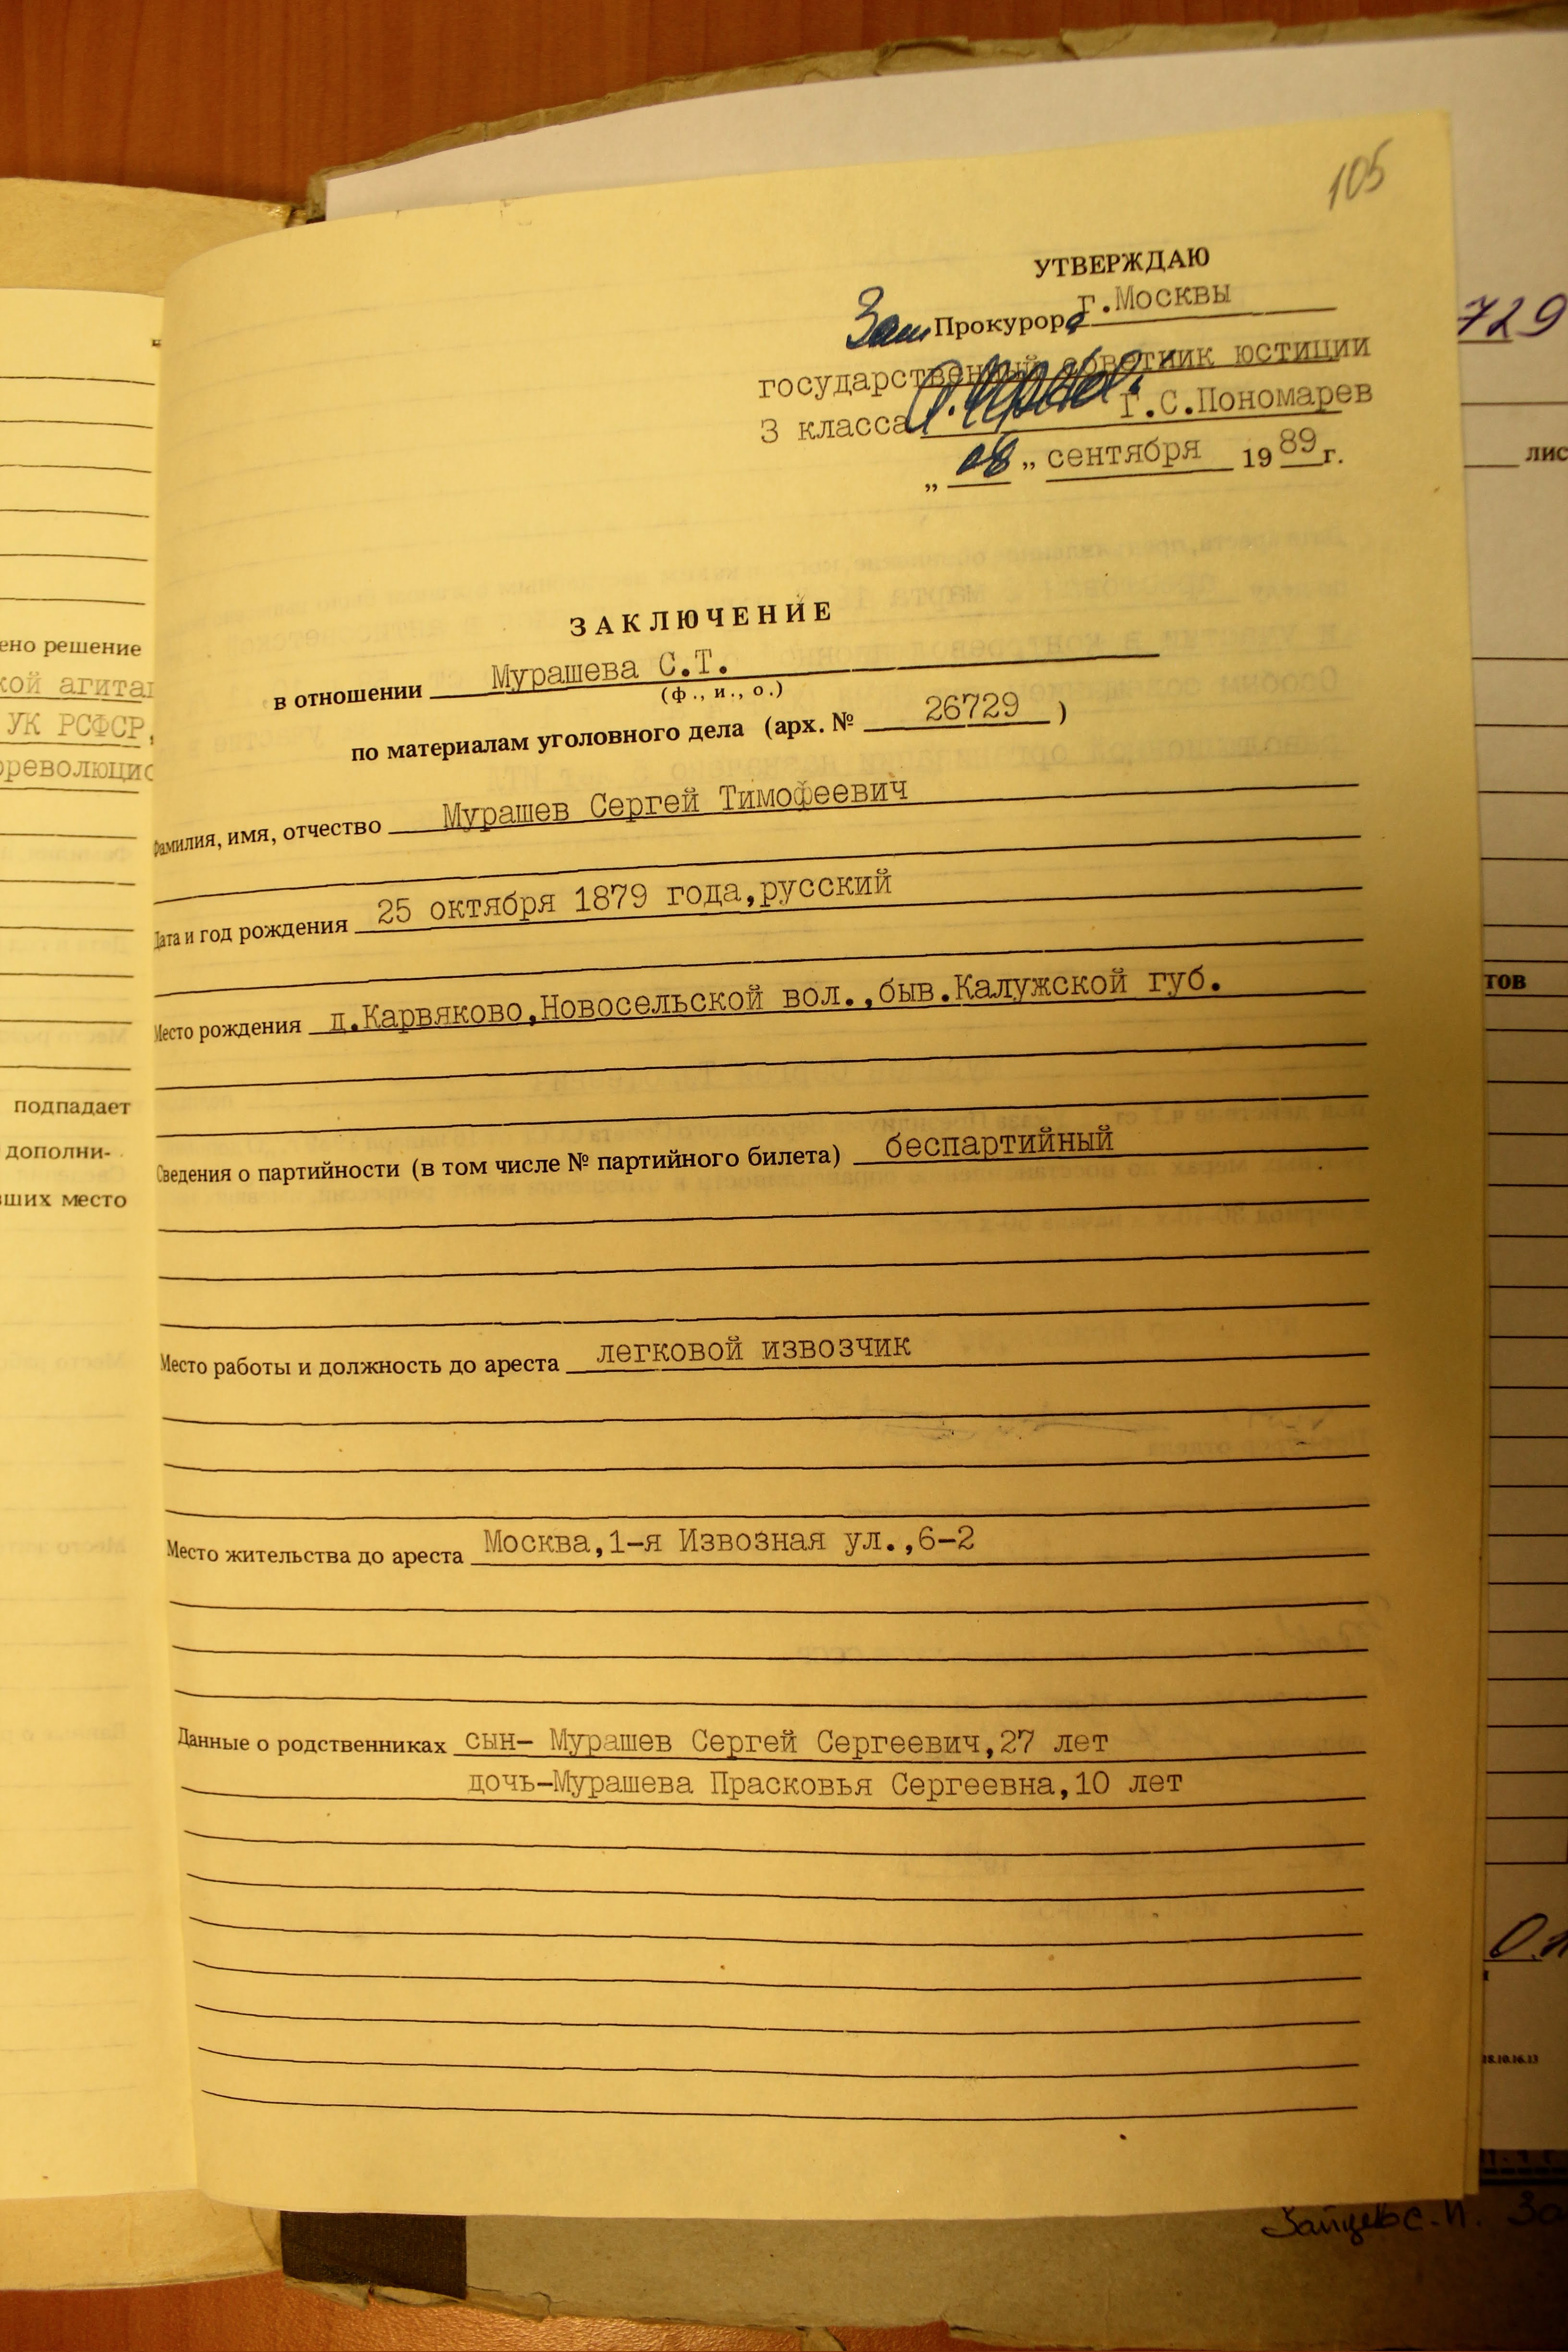 105
УТВЕРЖДАЮ
Зам Прокурора г.Москвы
государственный советник юстиции
3 класса Г.С.Пономарев
„ 08 „ сентября 1989 г.
ЗАКЛЮЧЕНИЕ
в отношении Мурашева С.Т.
(ф., и., о.)
по материалам уголовного дела (арх. № 26729 )
Фамилия, имя, отчество Мурашев Сергей Тимофеевич
Дата и год рождения 25 октября 1879 года,русский
Место рождения д.Карвяково,Новосельской вол.,быв.Калужской губ.
Сведения о партийности (в том числе № партийного билета) беспартийный
Место работы и должность до ареста легковой извозчик
Место жительства до ареста Москва,1-я Извозная ул.,6-2
Данные о родственниках сын- Мурашев Сергей Сергеевич,27 лет
дочь-Мурашева Прасковья Сергеевна,10 лет
ено решение
кой агита
УК РСФСР,
ореволюцио
подпадает
дополни-
вших место
729
лис
тов
18.10.16.13
Зайцев С.И. За